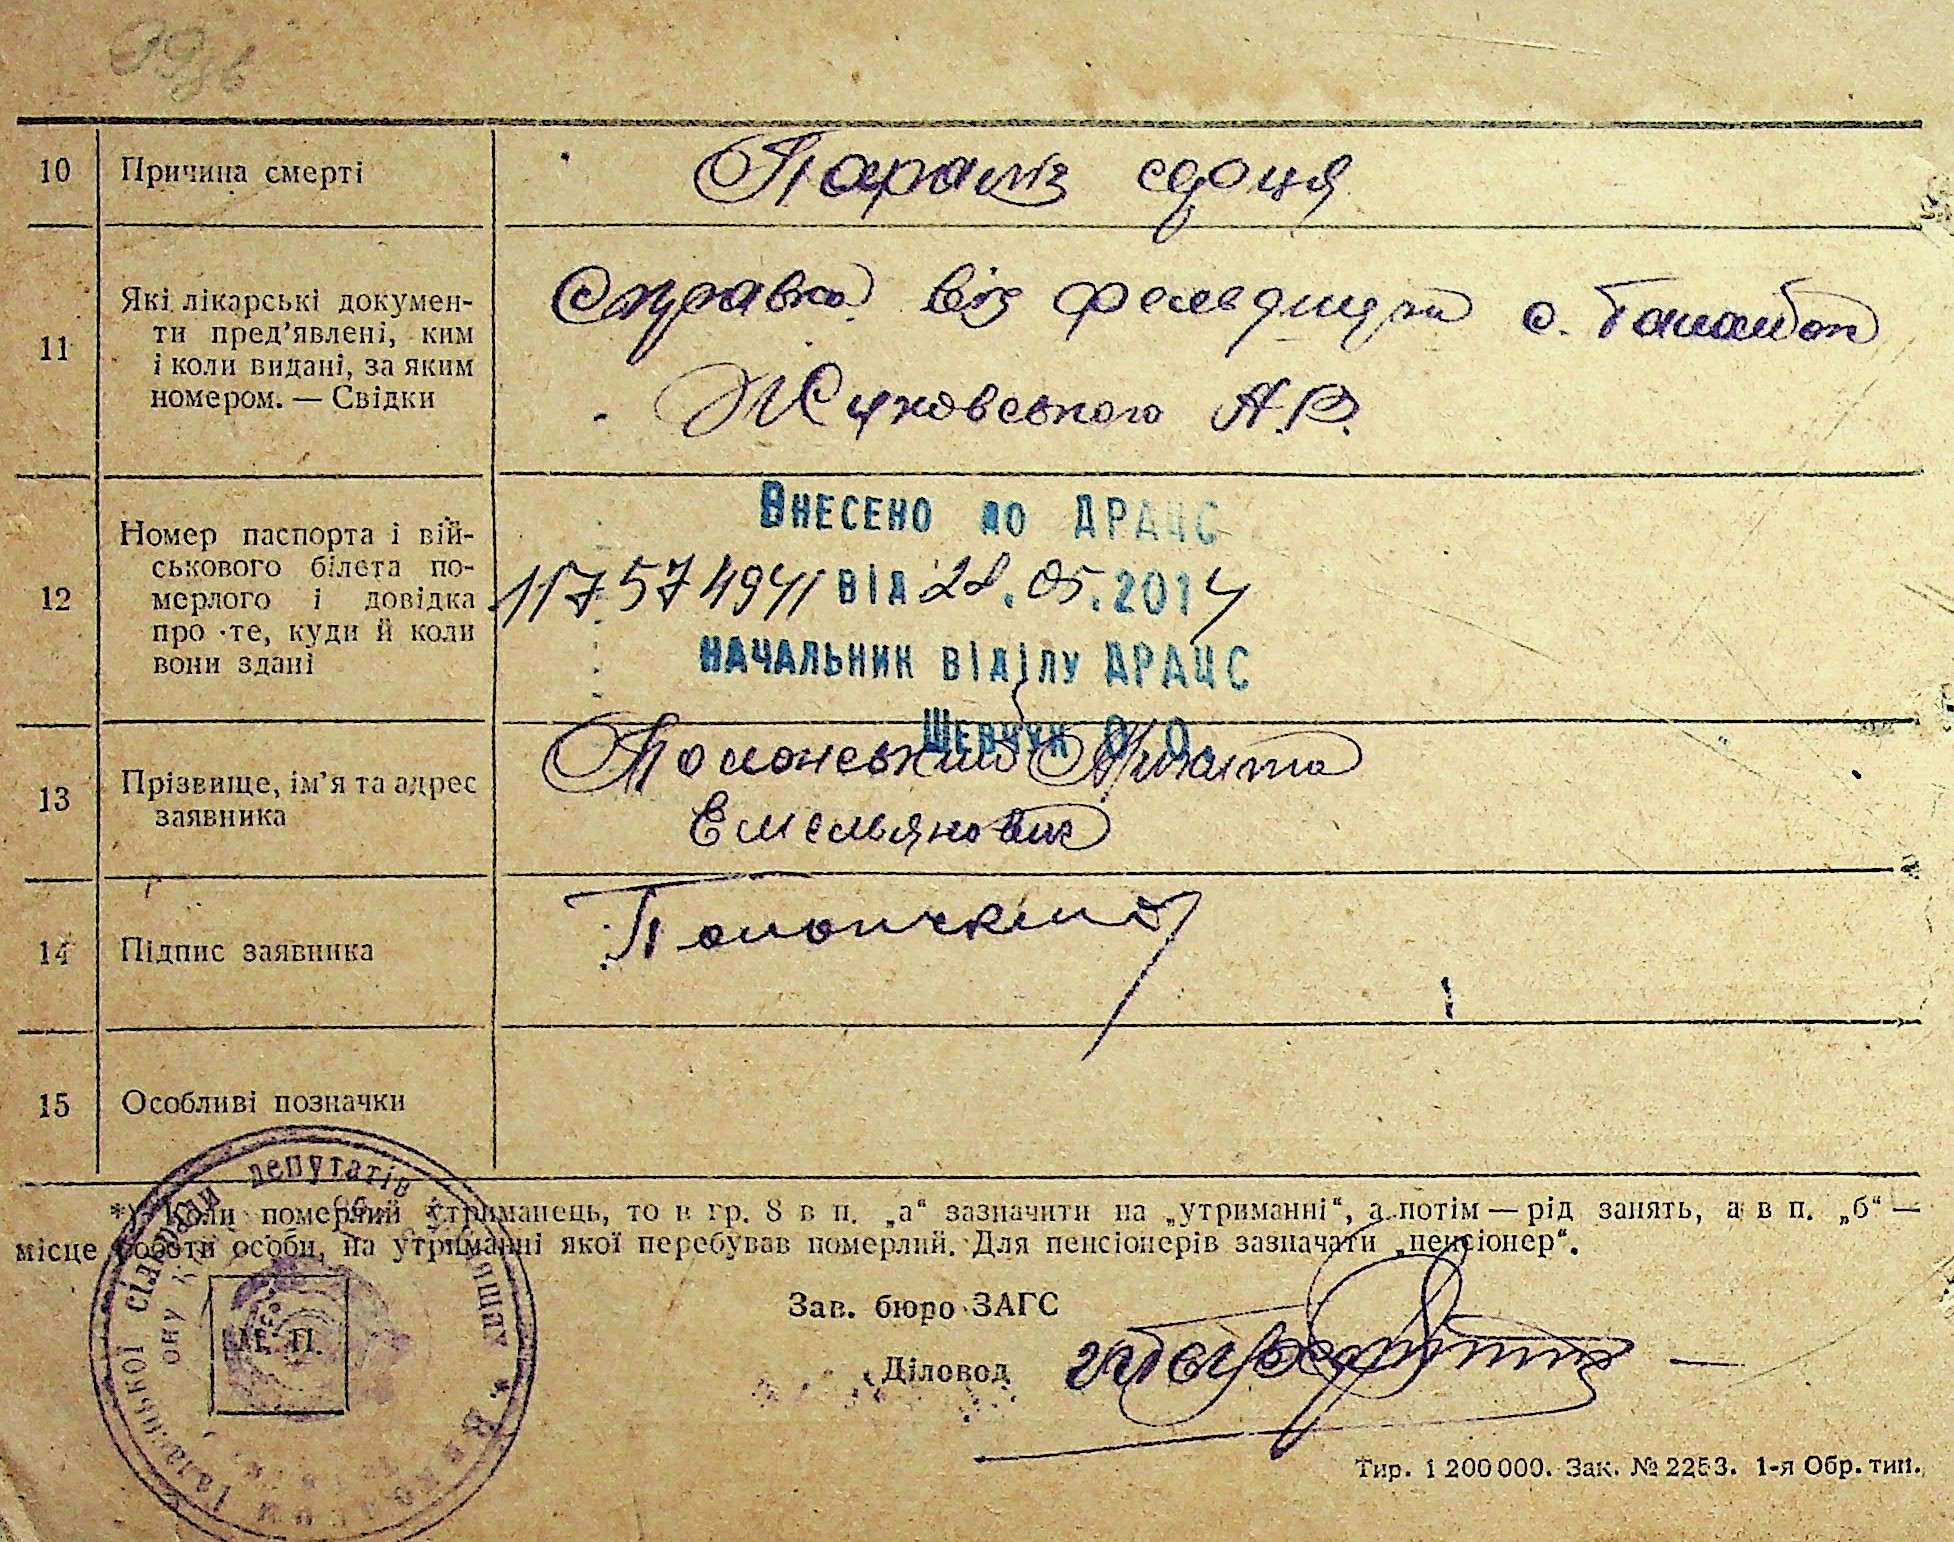 10 Причина смерті Параліз сдоця
11 Які лікарські докумен-
ти пред’явлені, ким
і коли видані, за яким
номером. — Свідки
Справка від с.
Жуковського А.В.
Внесено до ДРАЦС
12 Номер паспорта і вій-
ськового білета по-
мерлого і довідка
про те, куди й коли
вони здані
від 28.05.2014
начальник відділу ДРАЦС
Шевчук О.О.
13 Прізвище, ім’я та адрес
заявника
Полонський Микита
Емельянович
14 Підпис заявника
15 Особливі позначки
*) Коли померлий утриманець, то в гр. 8 в п. „а“ зазначити на „утриманні“, а потім — рід занять, а в п. „б“ —
місце роботи особи, на утриманні якої перебував померлий. Для пенсіонерів зазначати „пенсіонер“.
депутатів трудящих
М. П.
Зав. бюро ЗАГС
Діловод
Тир. 1 200 000. Зак. № 2253. 1-я Обр. тип.